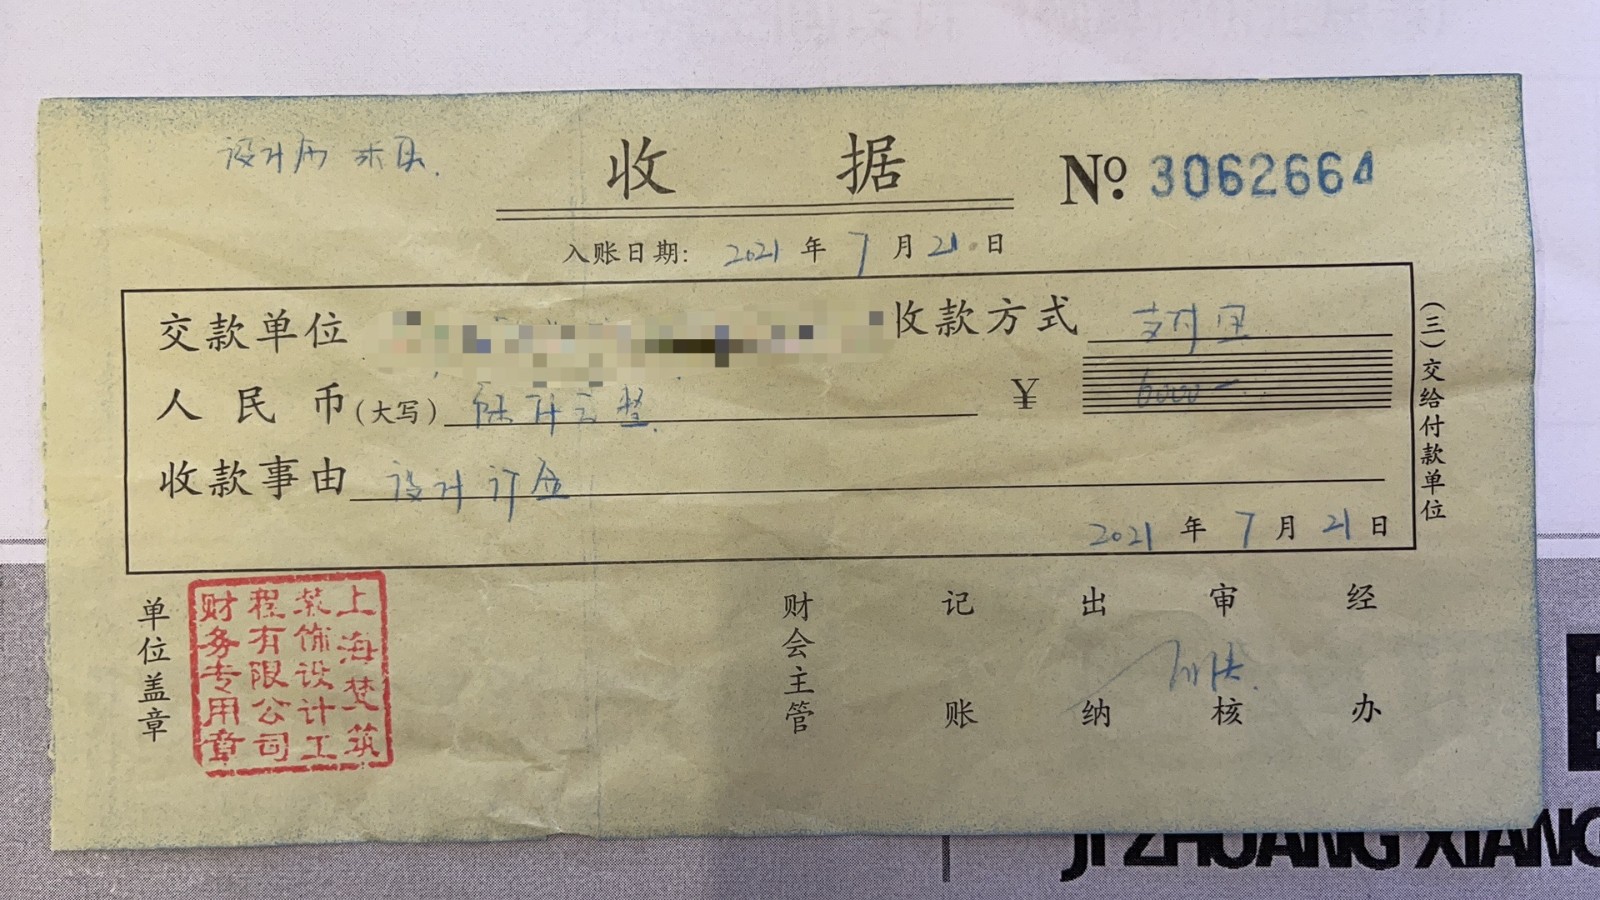 设计师 木易.
收 据
№ 3062664
入账日期: 2021 年 7 月 21 日
交款单位 收款方式 支付宝
人民币(大写) 陆仟元整 ¥ 6000-
收款事由 设计订金
2021 年 7 月 21 日
(三)交给付款单位
单位盖章
上海梵筑
装饰设计工
程有限公司
财务专用章
财会主管
记账
出纳
审核
经办
JI ZHUANG XIANG